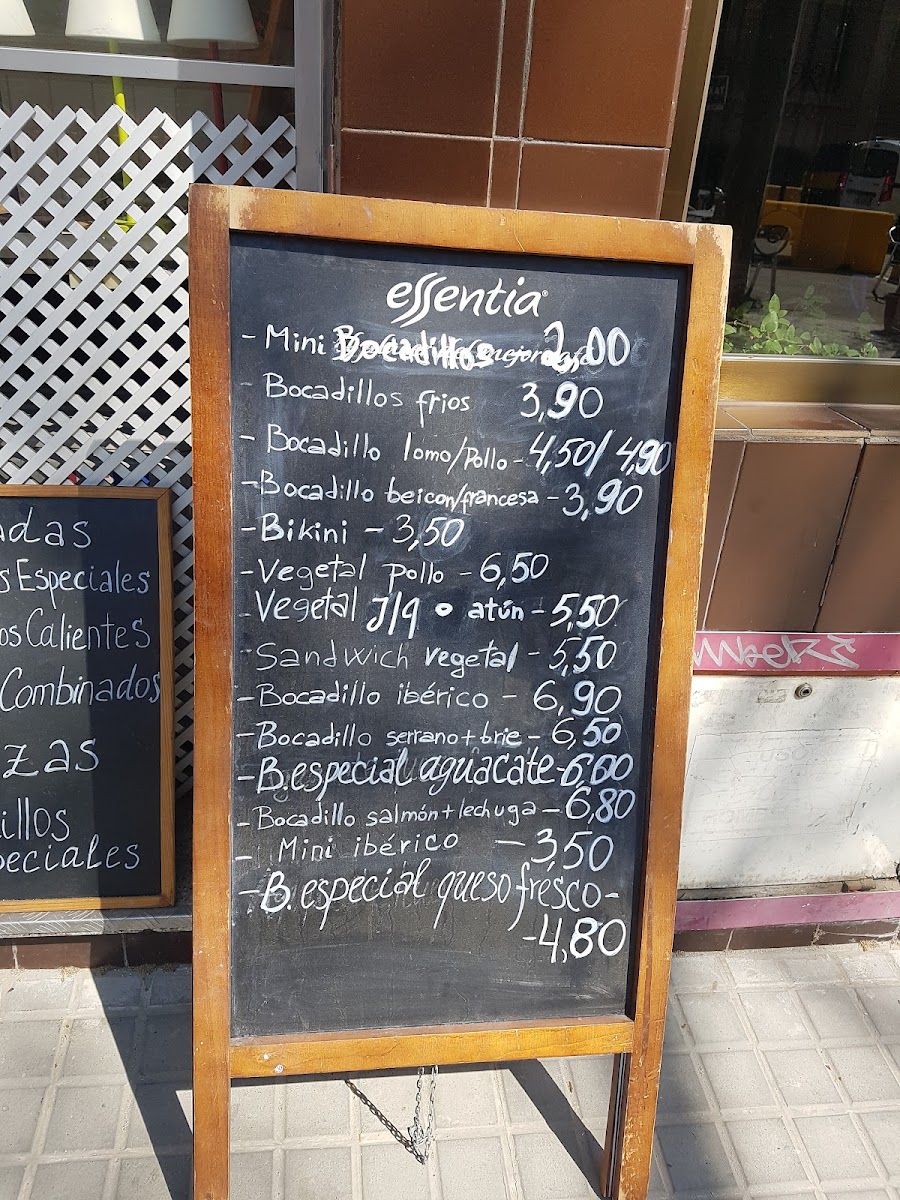 essentia
- Mini Bocadillos 2,00
- Bocadillos frios 3,90
- Bocadillo lomo/Pollo - 4,50/ 4,90
- Bocadillo beicon/francesa - 3,90
- Bikini - 3,50
- Vegetal pollo - 6,50
- Vegetal J/q o atún - 5,50
- Sandwich vegetal - 5,50
- Bocadillo ibérico - 6,90
- Bocadillo serrano + brie - 6,50
- B. especial aguacate - 6,00
- Bocadillo salmón + lechuga - 6,80
- Mini ibérico - 3,50
- B. especial queso frésco -
- 4,80
adas
s Especiales
os Calientes
Combinados
zas
illos
peciales